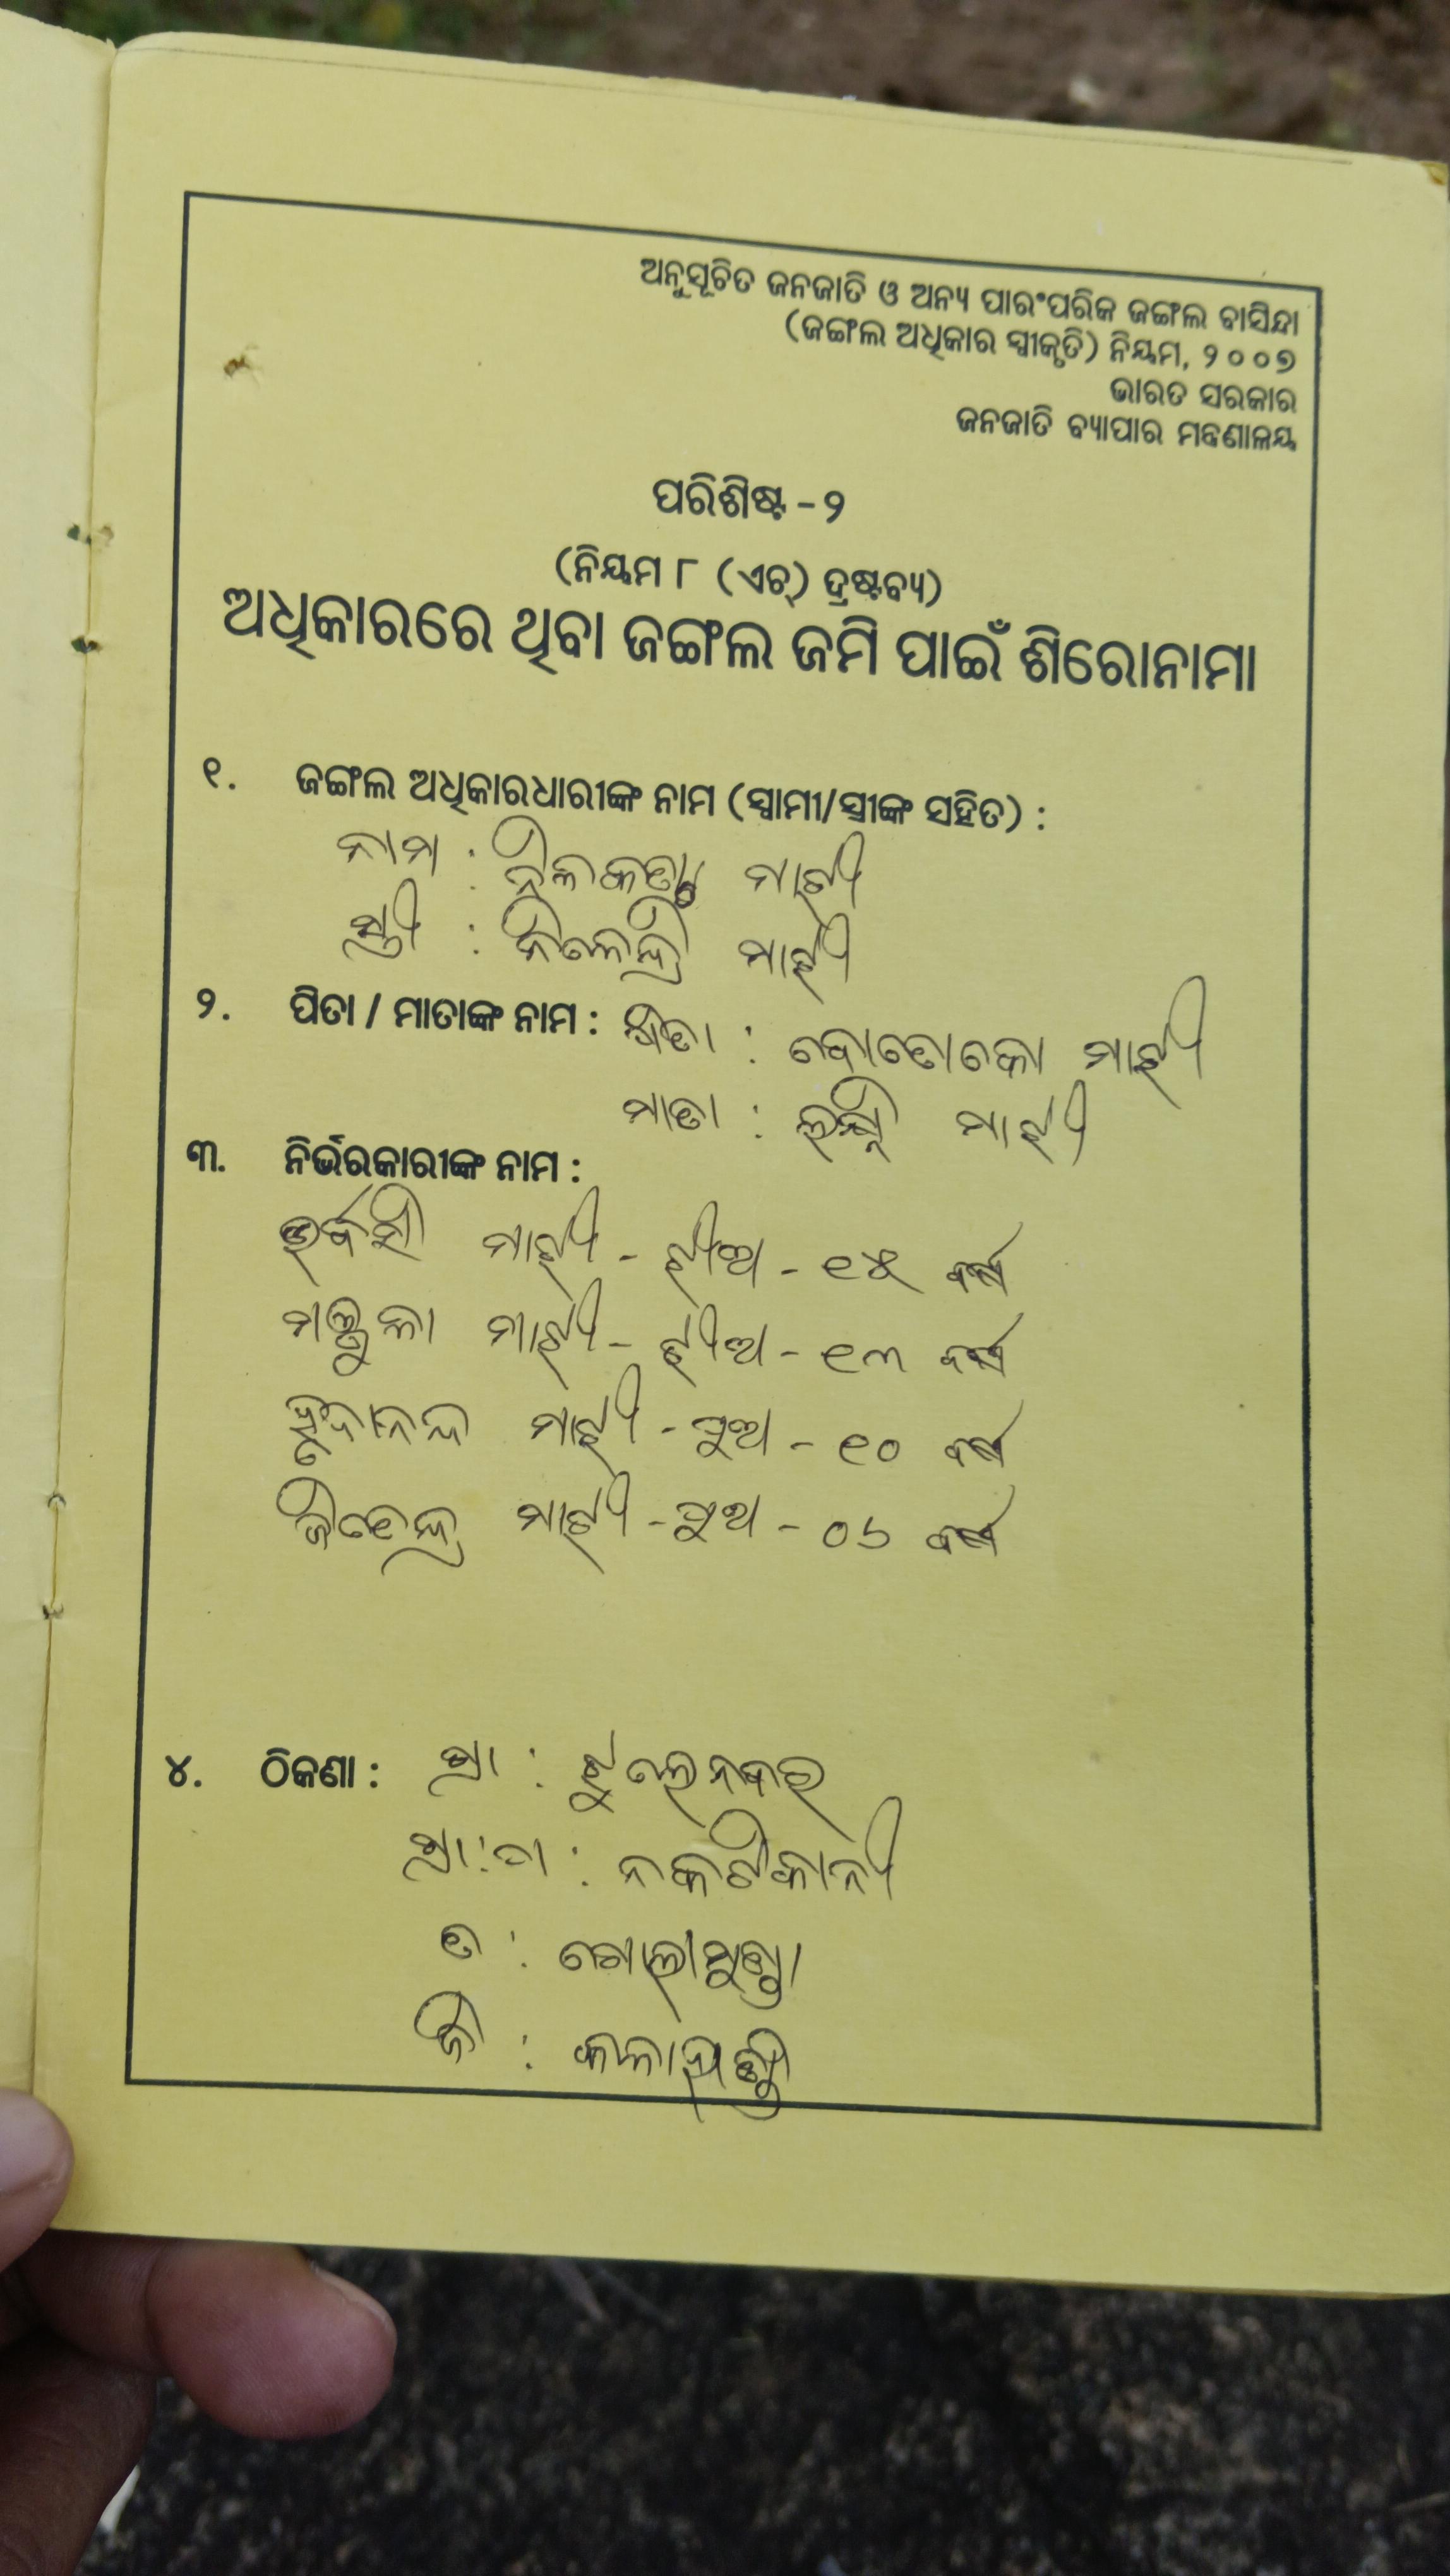 ଅନୁସୂଚିତ ଜନଜାତି ଓ ଅନ୍ୟ ପାରଂପରିକ ଜଙ୍ଗଲ ବାସିନ୍ଦା
(ଜଙ୍ଗଲ ଅଧିକାର ସ୍ୱୀକୃତି) ନିୟମ, ୨୦୦୭
ଭାରତ ସରକାର
ଜନଜାତି ବ୍ୟାପାର ମନ୍ତ୍ରଣାଳୟ
ପରିଶିଷ୍ଟ - ୨
(ନିୟମ ୮ (ଏଚ୍) ଦ୍ରଷ୍ଟବ୍ୟ)
ଅଧିକାରରେ ଥିବା ଜଙ୍ଗଲ ଜମି ପାଇଁ ଶିରୋନାମା
୧. ଜଙ୍ଗଲ ଅଧିକାରଧାରୀଙ୍କ ନାମ (ସ୍ୱାମୀ/ସ୍ତ୍ରୀଙ୍କ ସହିତ) :
ନାମ : ମାଝୀ
ସ୍ତ୍ରୀ : ମାଝୀ
୨. ପିତା / ମାତାଙ୍କ ନାମ : ପିତା : ମାଝୀ
ମାତା : ମାଝୀ
୩. ନିର୍ଭରକାରୀଙ୍କ ନାମ :
ମାଝୀ - ଝୀଅ - ୧୫ ବର୍ଷ
ମଞ୍ଜୁଳା ମାଝୀ - ଝୀଅ - ୧୩ ବର୍ଷ
ମାଝୀ - ପୁଅ - ୧୦ ବର୍ଷ
ଜିତେନ୍ଦ୍ର ମାଝୀ - ପୁଅ - ୦୬ ବର୍ଷ
୪. ଠିକଣା : ଗ୍ରା :
ଗ୍ରା:ପ : ନକଟିକାନୀ
ତ : ଗୋଲାମୁଣ୍ଡା
ଜି : କଳାହାଣ୍ଡି